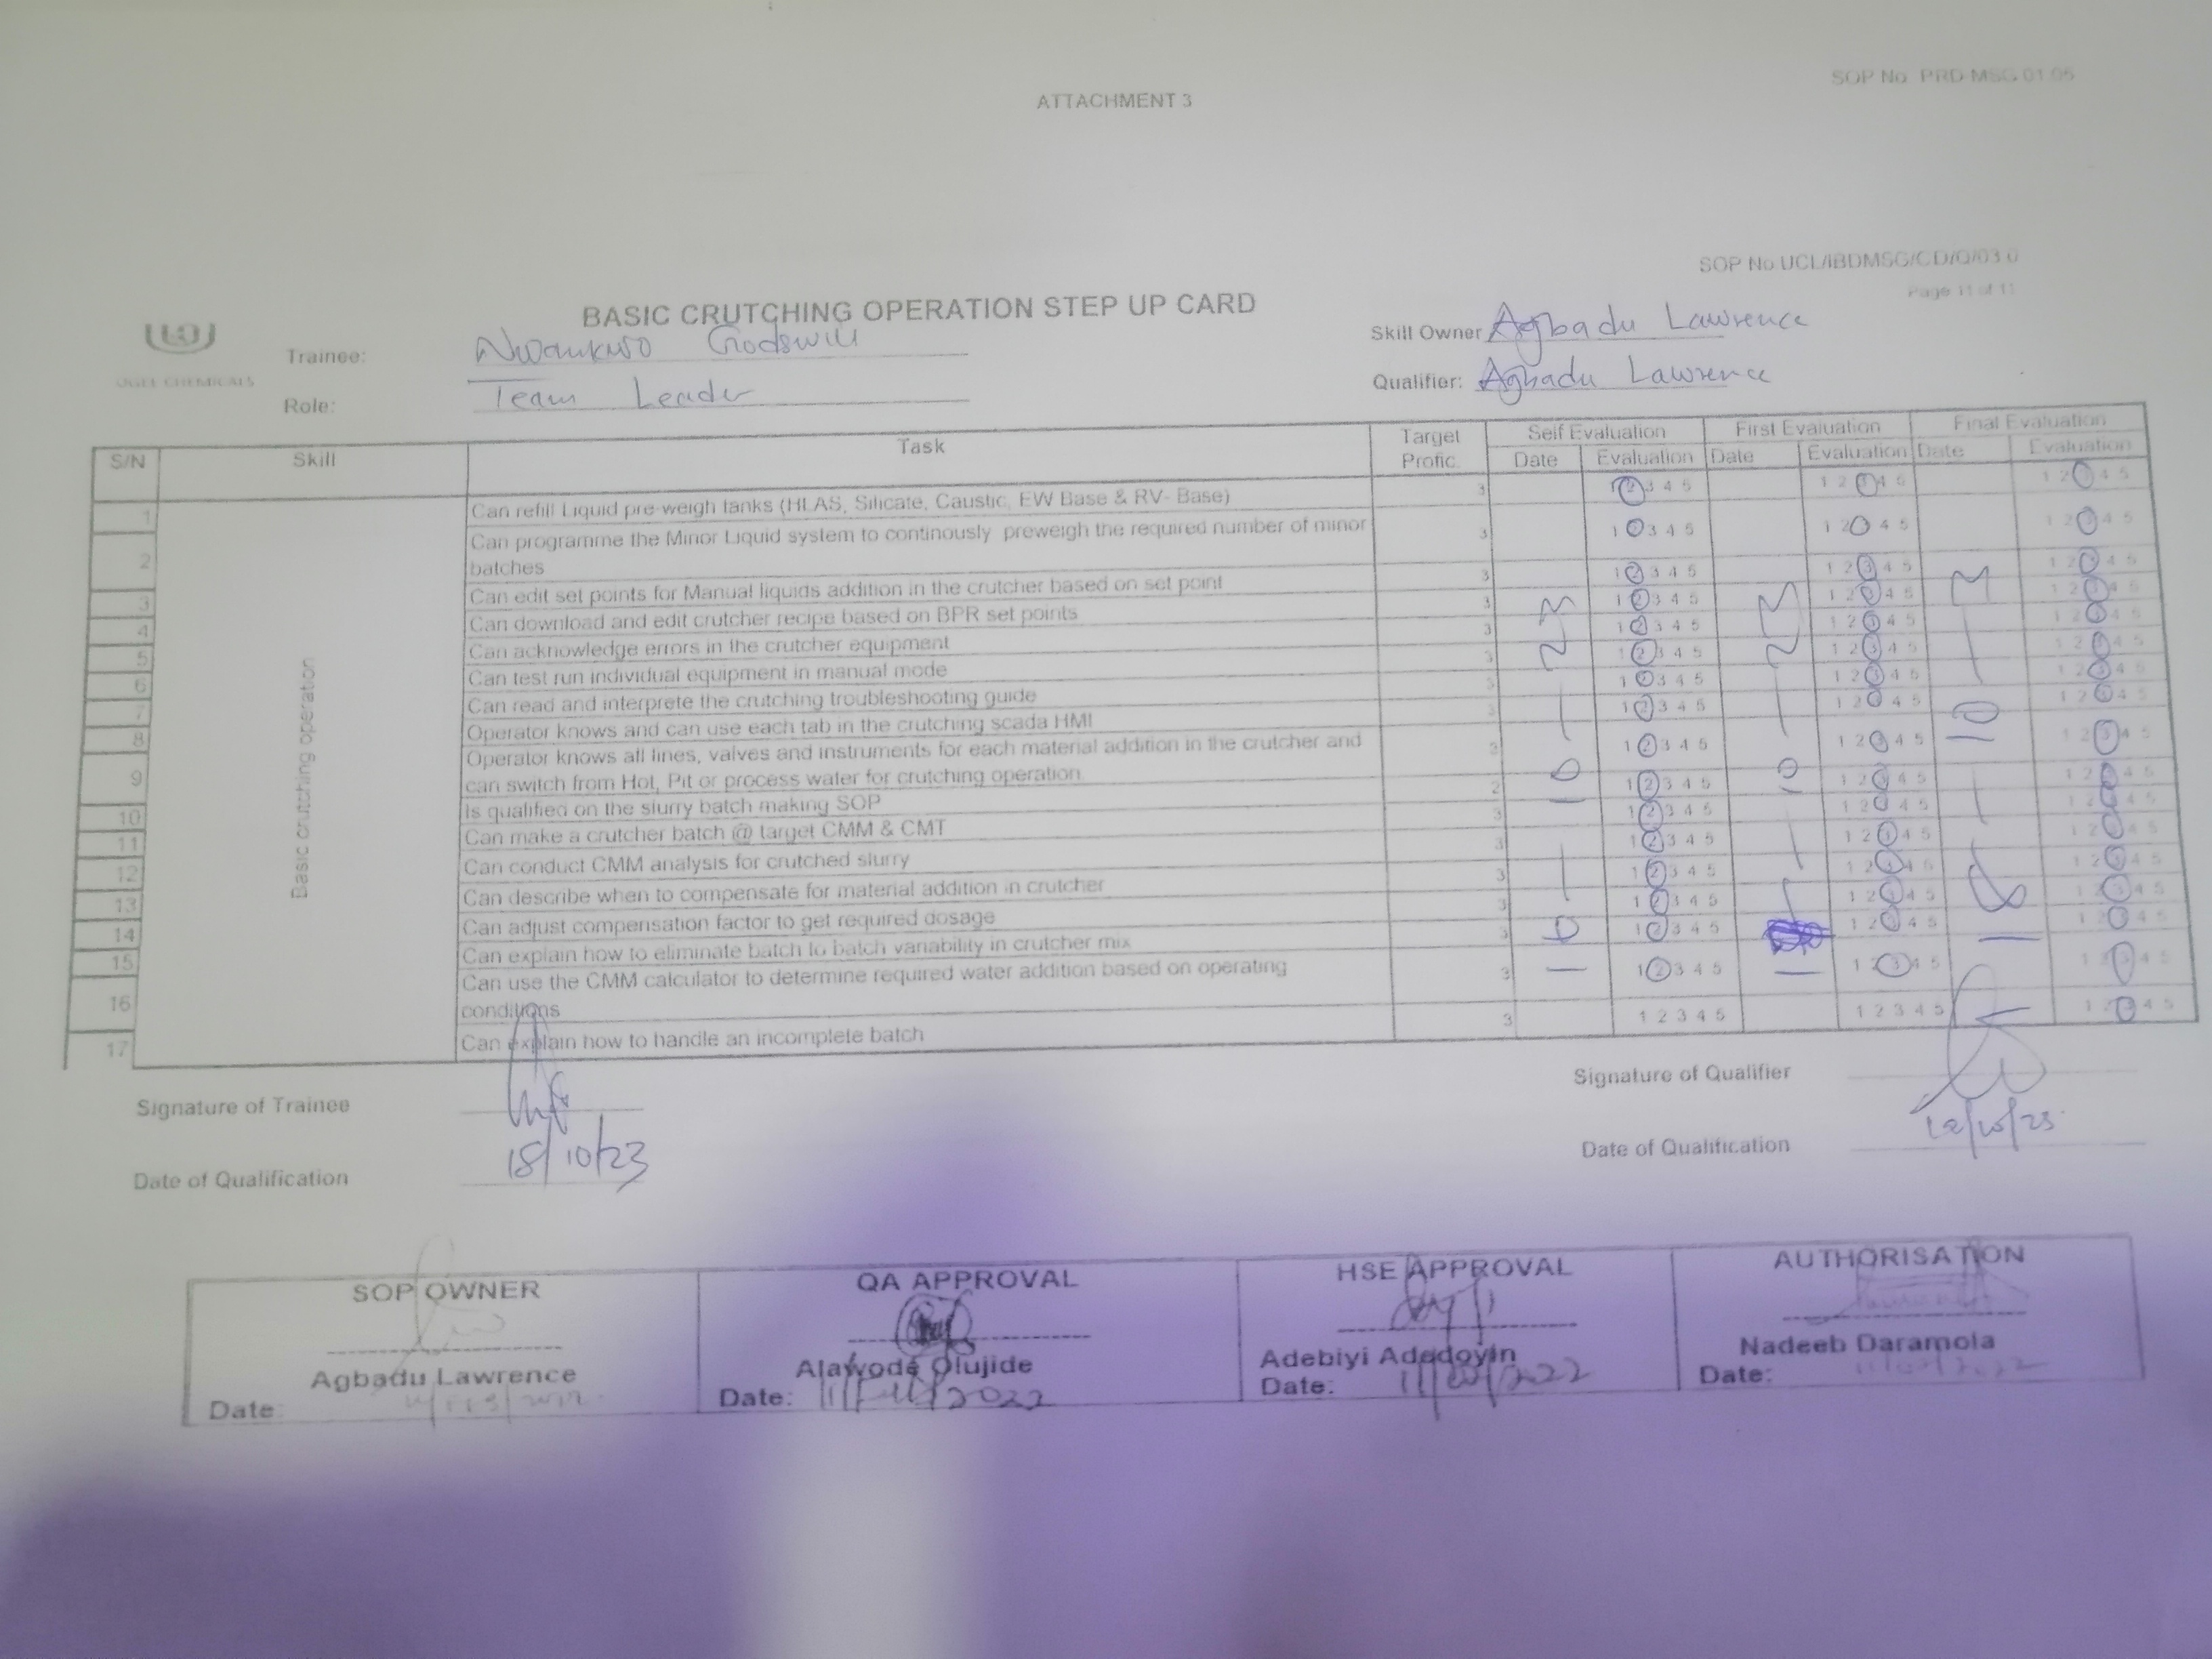 SOP No PRD-MSG 01.05
ATTACHMENT 3
SOP No UCL/IBDMSG/CD/O/03.0
Page 11 of 11
BASIC CRUTCHING OPERATION STEP UP CARD
Trainee: Nwankwo Godswill
Skill Owner Agbadu Lawrence
Role: Team Leader
Qualifier: Agbadu Lawrence
S/N Skill Task Target Profic. Self Evaluation First Evaluation Final Evaluation
Date Evaluation Date Evaluation Date Evaluation
Basic crutching operation
1 Can refill Liquid pre-weigh tanks (HLAS, Silicate, Caustic, EW Base & RV- Base) 3 1 2 3 4 5 1 2 3 4 5 1 2 3 4 5
2 Can programme the Minor Liquid system to continously preweigh the required number of minor
batches 3 1 2 3 4 5 1 2 3 4 5 1 2 3 4 5
3 Can edit set points for Manual liquids addition in the crutcher based on set point 3 1 2 3 4 5 1 2 3 4 5 1 2 3 4 5
4 Can download and edit crutcher recipe based on BPR set points 3 1 2 3 4 5 1 2 3 4 5 1 2 3 4 5
5 Can acknowledge errors in the crutcher equipment 3 1 2 3 4 5 1 2 3 4 5 1 2 3 4 5
6 Can test run individual equipment in manual mode 3 1 2 3 4 5 1 2 3 4 5 1 2 3 4 5
7 Can read and interprete the crutching troubleshooting guide 3 1 2 3 4 5 1 2 3 4 5 1 2 3 4 5
8 Operator knows and can use each tab in the crutching scada HMI 3 1 2 3 4 5 1 2 3 4 5 1 2 3 4 5
9 Operator knows all lines, valves and instruments for each material addition in the crutcher and
can switch from Hot, Pit or process water for crutching operation 1 2 3 4 5 1 2 3 4 5 1 2 3 4 5
10 Is qualified on the slurry batch making SOP 1 2 3 4 5 1 2 3 4 5 1 2 3 4 5
11 Can make a crutcher batch @ target CMM & CMT 3 1 2 3 4 5 1 2 3 4 5 1 2 3 4 5
12 Can conduct CMM analysis for crutched slurry 3 1 2 3 4 5 1 2 3 4 5 1 2 3 4 5
13 Can describe when to compensate for material addition in crutcher 3 1 2 3 4 5 1 2 3 4 5 1 2 3 4 5
14 Can adjust compensation factor to get required dosage 3 1 2 3 4 5 1 2 3 4 5 1 2 3 4 5
15 Can explain how to eliminate batch to batch variability in crutcher mix 3 1 2 3 4 5 1 2 3 4 5 1 2 3 4 5
16 Can use the CMM calculator to determine required water addition based on operating
conditions 3 1 2 3 4 5 1 2 3 4 5 1 2 3 4 5
17 Can explain how to handle an incomplete batch 3 1 2 3 4 5 1 2 3 4 5 1 2 3 4 5
Signature of Trainee
Signature of Qualifier
Date of Qualification 18/10/23
Date of Qualification
SOP OWNER QA APPROVAL HSE APPROVAL AUTHORISATION
Agbadu Lawrence Alawode Olujide Adebiyi Adedoyin Nadeeb Daramola
Date: Date: Date: Date: